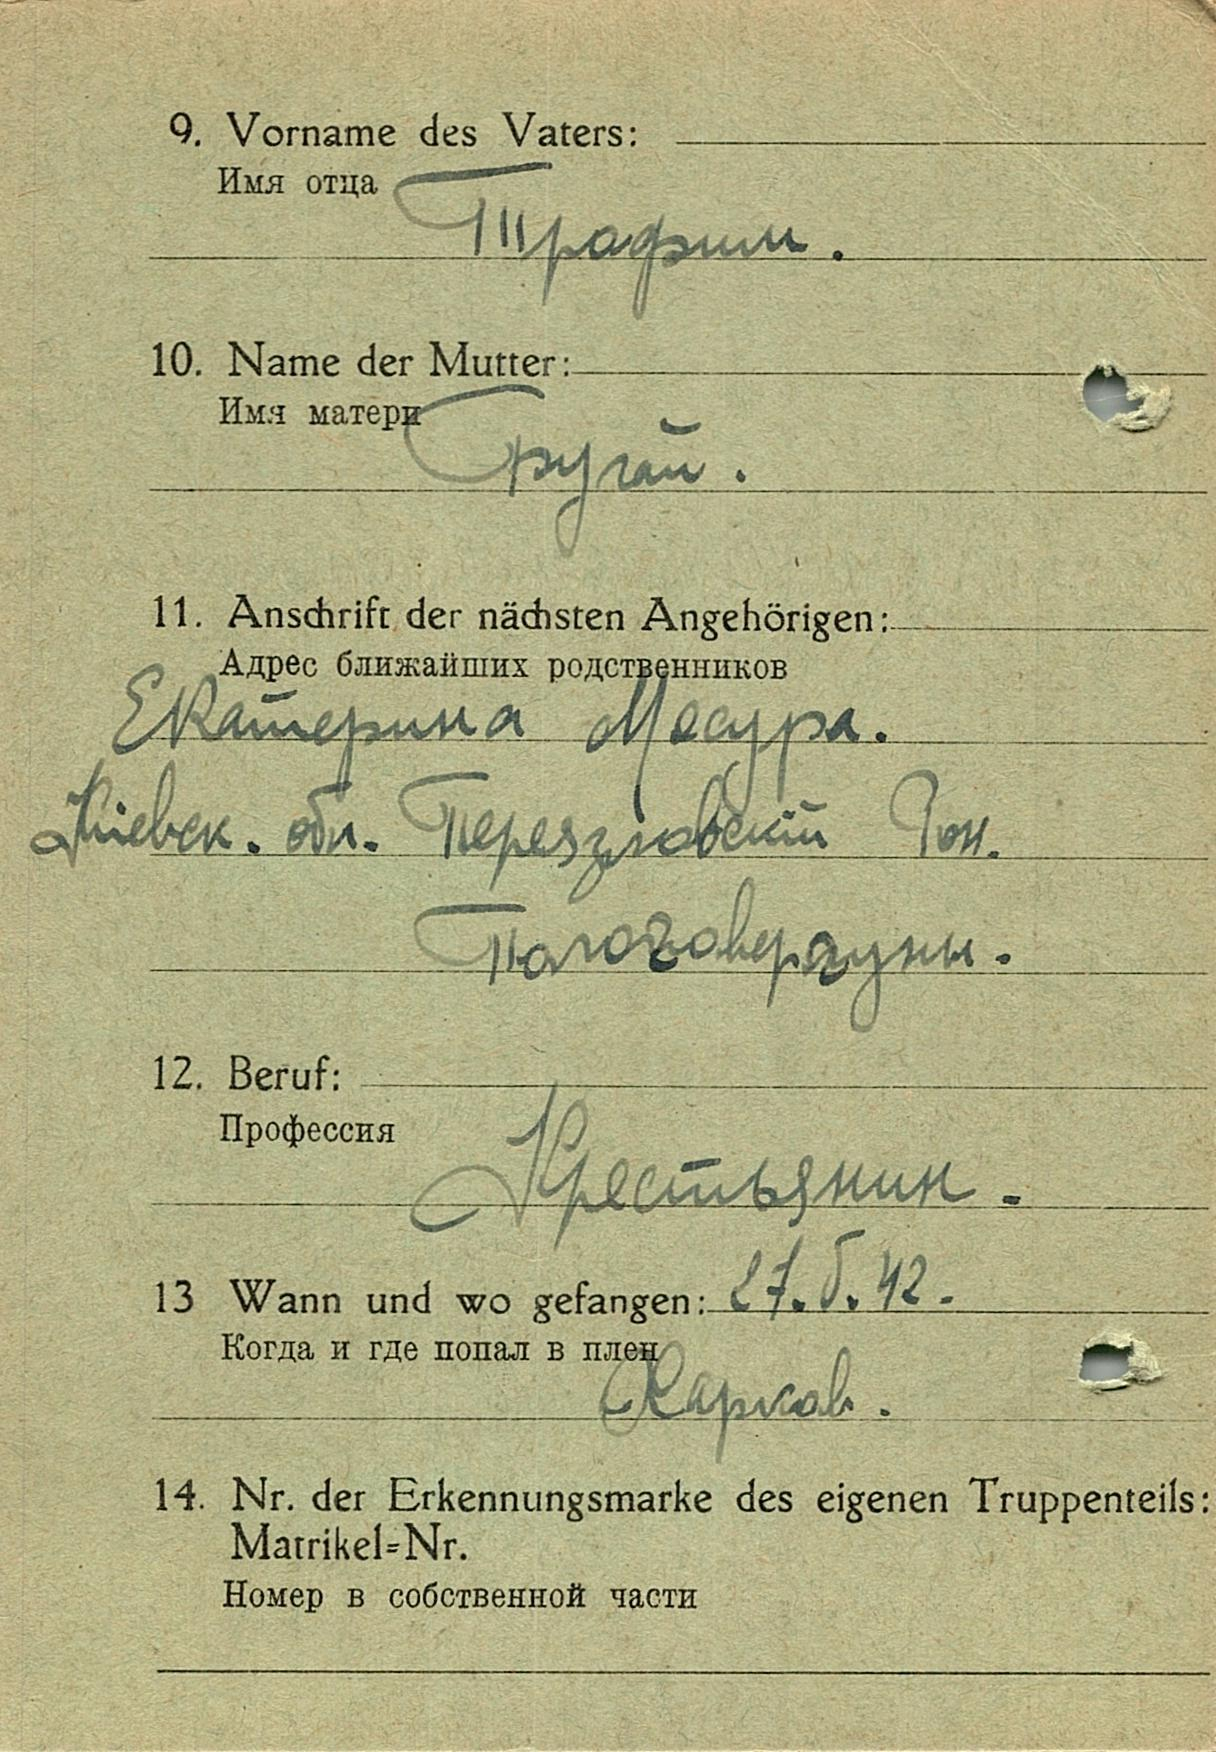 9. Vorname des Vaters:
Имя отца
Трафим.
10. Name der Mutter:
Имя матери
11. Anschrift der nächsten Angehörigen:
Адрес ближайших родственников
Екатерина Месура.
Кіевск. обл.
12. Beruf:
Профессия
Крестьянин.
13 Wann und wo gefangen: 27.5.42.
Когда и где попал в плен
Харков.
14. Nr. der Erkennungsmarke des eigenen Truppenteils:
Matrikel=Nr.
Номер в собственной части